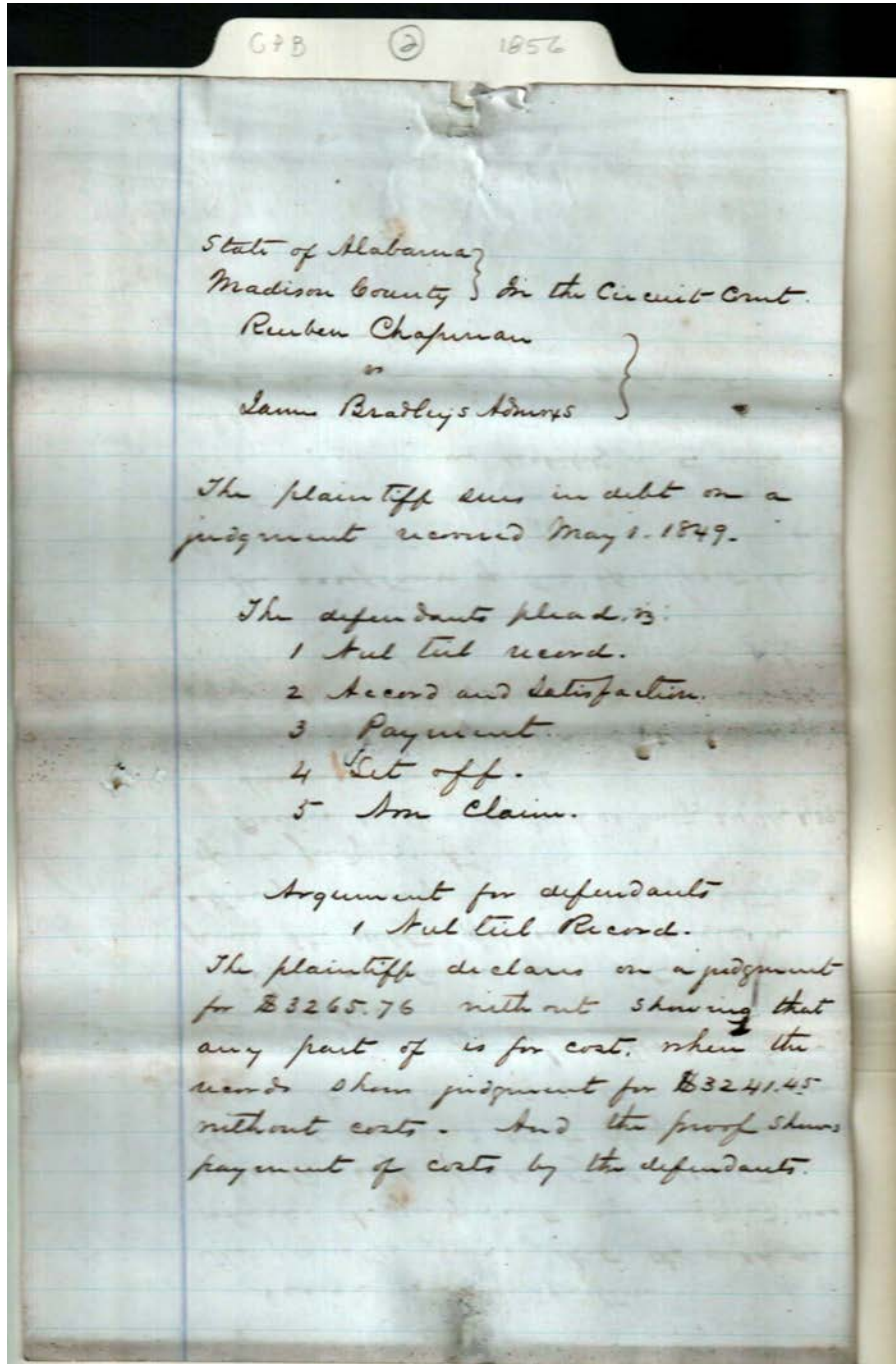 GPB 2 1856
State of Alabama }
Madison County } In the Circuit Court.
Reuben Chapman
vs
James Bradleys Admors }
The plaintiff sues in debt on a
judgment recovered May 1. 1849.
The defendants plead.
1 Nul tiel record.
2 Accord and Satisfaction.
3 Payment.
4 Set off.
5 Non Claim.
Argument for defendants
1 Nul tiel Record.
The plaintiff declares on a judgment
for $3265.76 without showing that
any part of is for cost. when the
records show judgment for $3241.45
without costs. And the proof shows
payment of costs by the defendants.